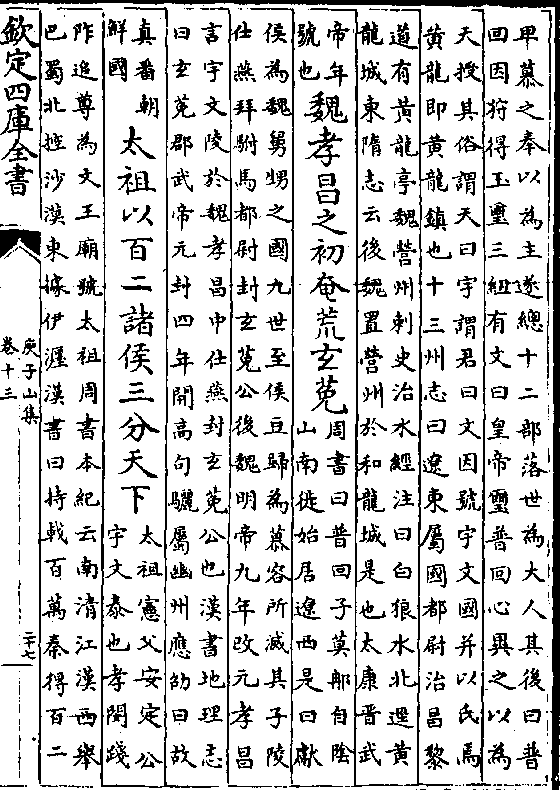 卑慕之奉以為主遂總十二部落世為大人其後曰普
回因狩得玉璽三紐有文曰皇帝璽普回心異之以為
天授其俗謂天曰宇謂君曰文因號宇文國并以氏焉
黃龍即黃龍鎮也十三州志曰遼東屬國都尉治昌黎
道有黃龍亭魏營州刺史治水經注曰白狼水北逕黃
龍城東隋志云後魏置營州於和龍城是也太康晉武
帝年
號也
魏孝昌之初奄荒玄菟
周書曰普回子莫那自陰
山南徙始居遼西是曰獻
侯為魏舅甥之國九世至侯豆歸為慕容所滅其子陵
仕燕拜駙馬都尉封玄菟公後魏明帝九年改元孝昌
言宇文陵於魏孝昌中仕燕封玄菟公也漢書地理志
曰玄菟郡武帝元封四年開高句驪屬幽州應劭曰故
真番朝
鮮國
太祖以百二諸侯三分天下
太祖憲父安定公
宇文泰也孝閔踐
阼追尊為文王廟號太祖周書本紀云南清江漢西舉
巴蜀北控沙漠東據伊瀍漢書曰持戟百萬秦得百二
欽定四庫全書
庾子山集
卷十三
二十七